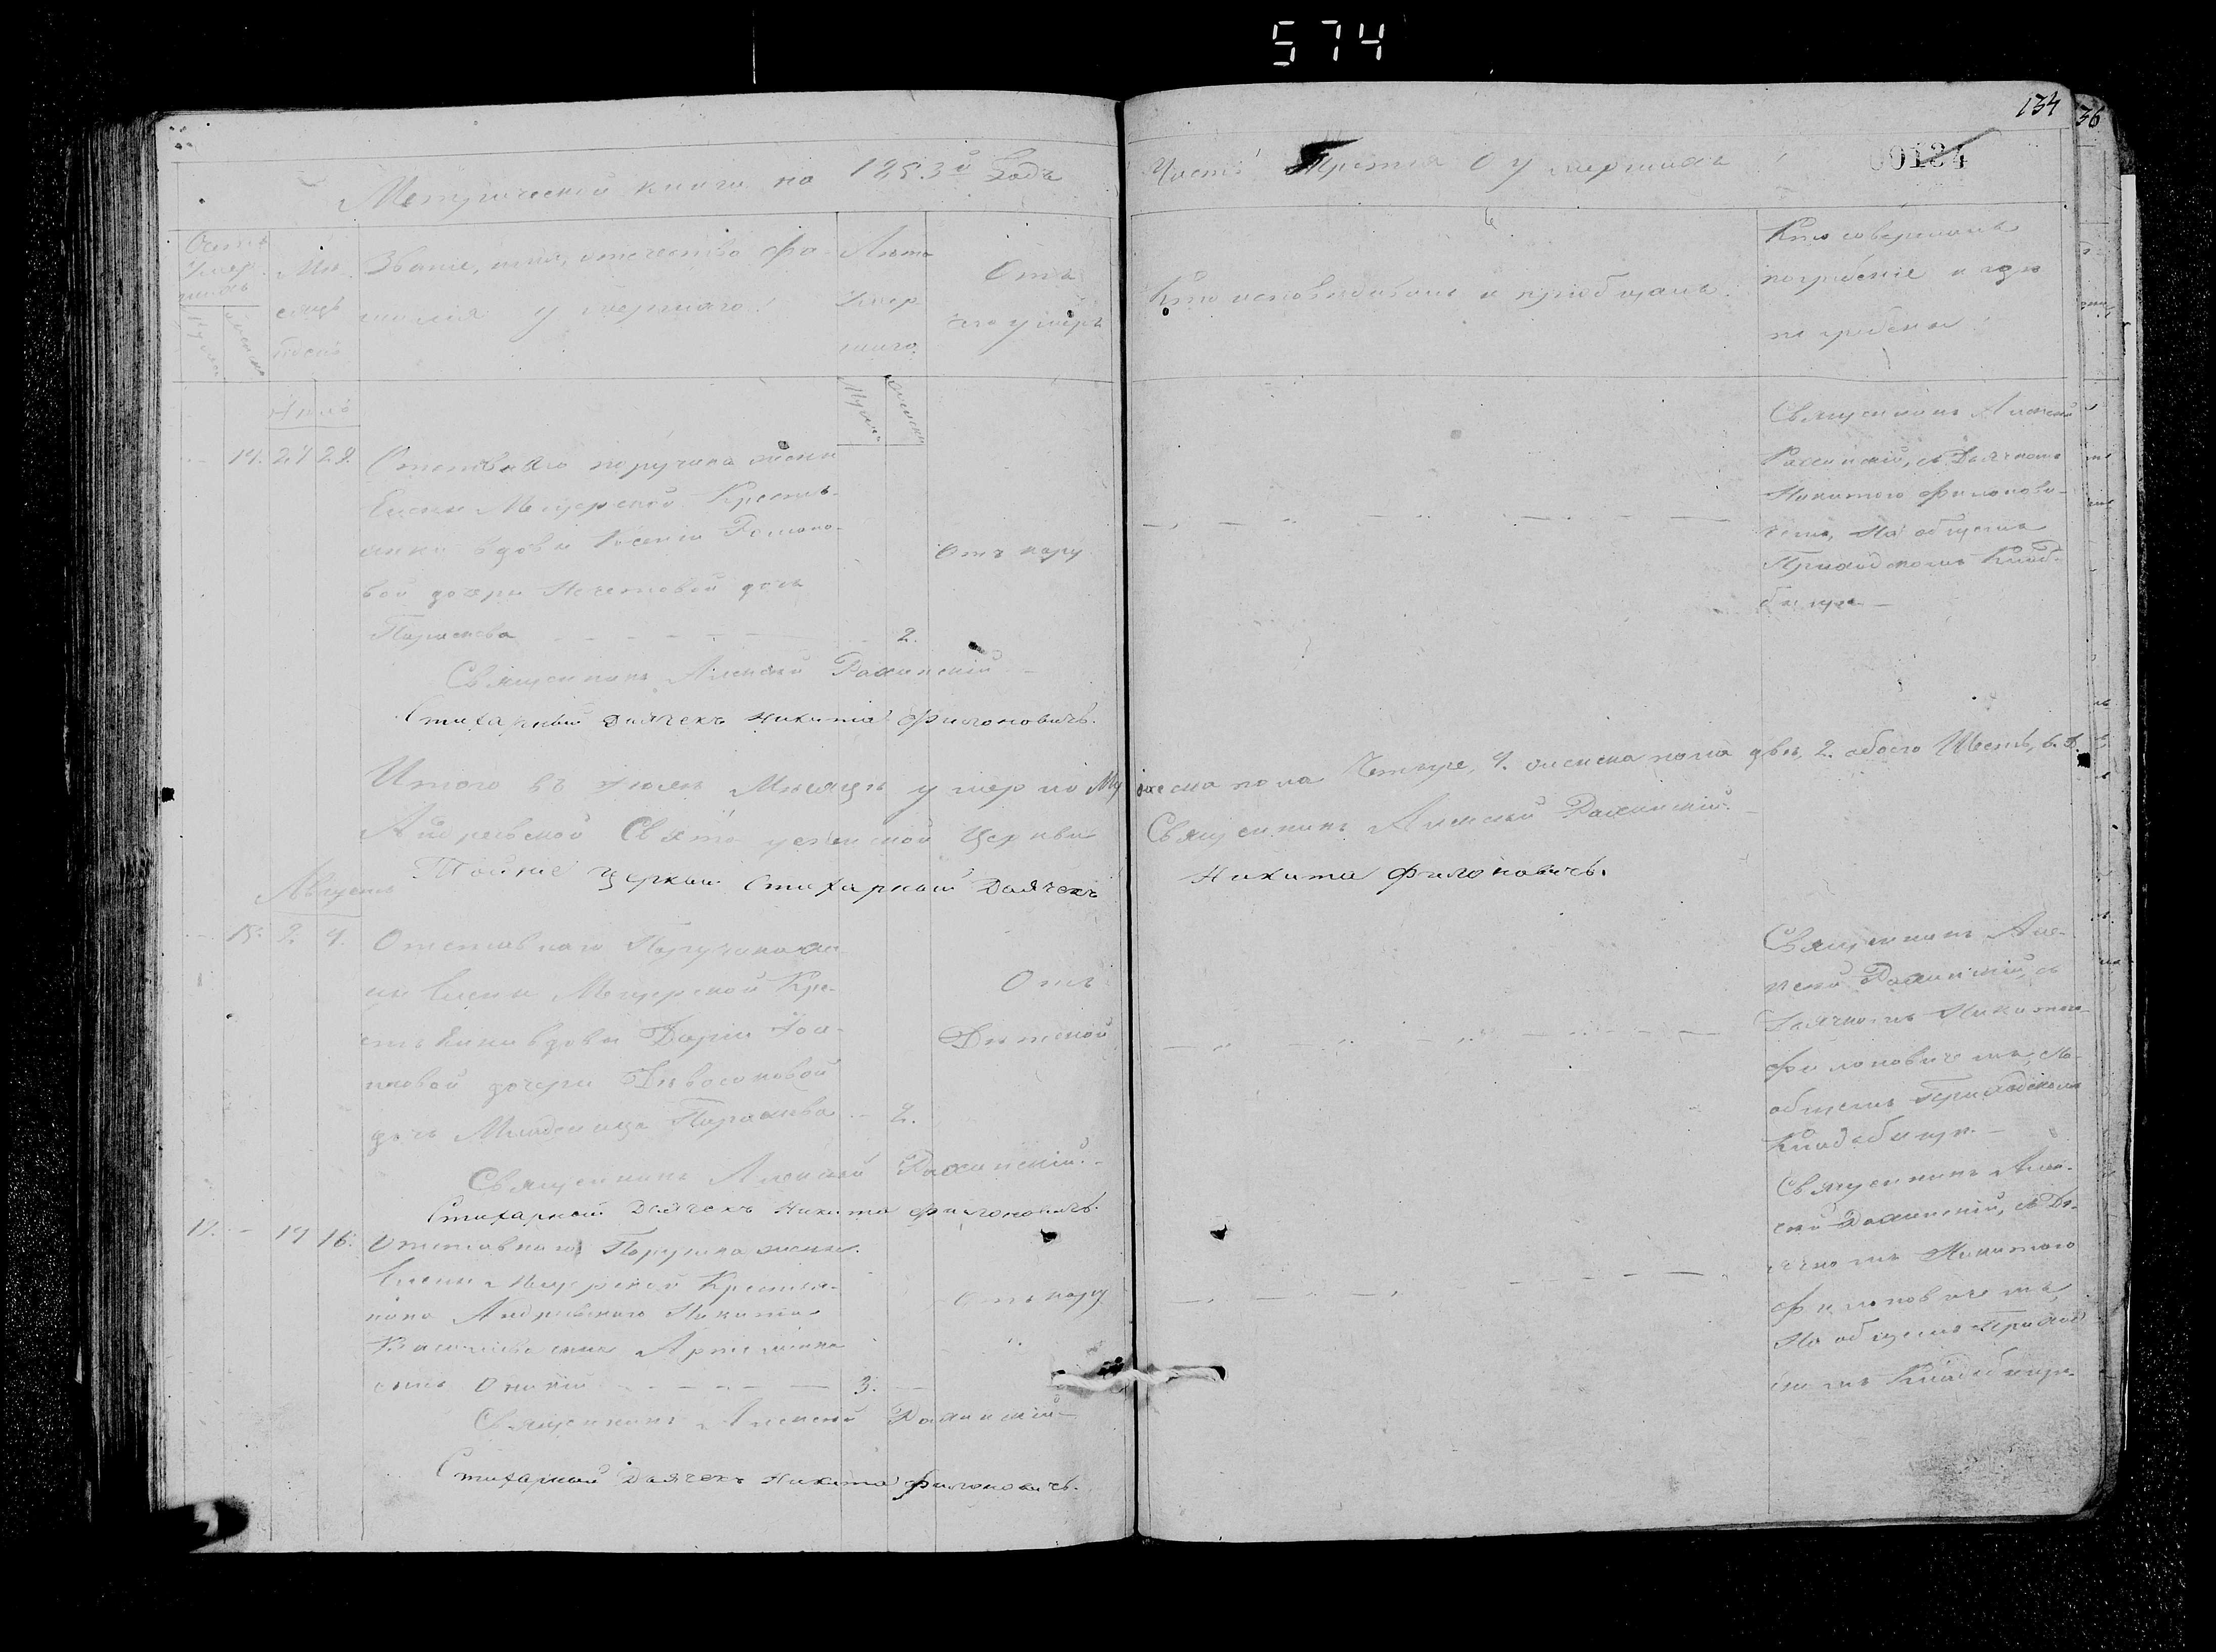 574
134
36
00134
Метрической книги на 1853й Годъ
Часть Третья О умершихъ
Счетъ
Умер
шихъ
Мужеска
женска
Мѣ
сяцъ
и день
Званіе, имя, отечество фа-
милія умершаго.
Лѣта
Умер
шаго
Отъ
чего умеръ
Кто исповѣдовалъ и приобщалъ.
Кто совершалъ
погребеніе и гдѣ
погребены
Мужеска
женска
Іюль
14. 27 28. Отставнаго поручика жены
Елены Мещерской Крестья-
нки вдовы Ксеніи Романо-
вой дочери Нечетовой дочь
Параскева 2.
Отъ кору
Священникъ Алексей
Рахинскій, съ Дьячкомъ
Никитою Филонови-
чемъ, На общемъ
Приходскомъ Клад-
бищѣ
Священникъ Алексей Рахинскій
Стихарный Дьячекъ Никита Филоновичъ.
Итого въ Іюлѣ Мѣсяцѣ умерло Му жеска пола Четыре, 4. женска пола двѣ, 2. обоего Шесть, 6. д.
Андреевской Свято успенской Церкви Священникъ Алексей Рахинскій.
Той же Церкви Стихарный Дьячекъ Никита Филоновичъ.
Августъ
15. 2. 4. Отставнаго Поручика же-
ны Елены Мещерской Кре-
стьянки вдовы Даріи
дочери
дочь Младеница Параскева 2.
Отъ
Дѣтской
Священникъ Але-
ксей Рахинскій, съ
Дьячкомъ Никитою
Филоновичемъ, на
общемъ Приходскомъ
Кладбищѣ.
Священникъ Алексей Рахинскій.
Стихарный Дьячекъ Никита Филоновичъ.
17. 14 16. Отставнаго Поручика жены
Елены Мещерской Крестья-
нина Андреевскаго Никиты
Васильева сына
сынъ 3.
Отъ кору
Священникъ Але-
ксей Рахинскій, съ Дь-
ячкомъ Никитою
Филоновичемъ
На общемъ Приход
скомъ Кладбищѣ.
Священникъ Алексей Рахинскій
Стихарный Дьячекъ Никита Филоновичъ.